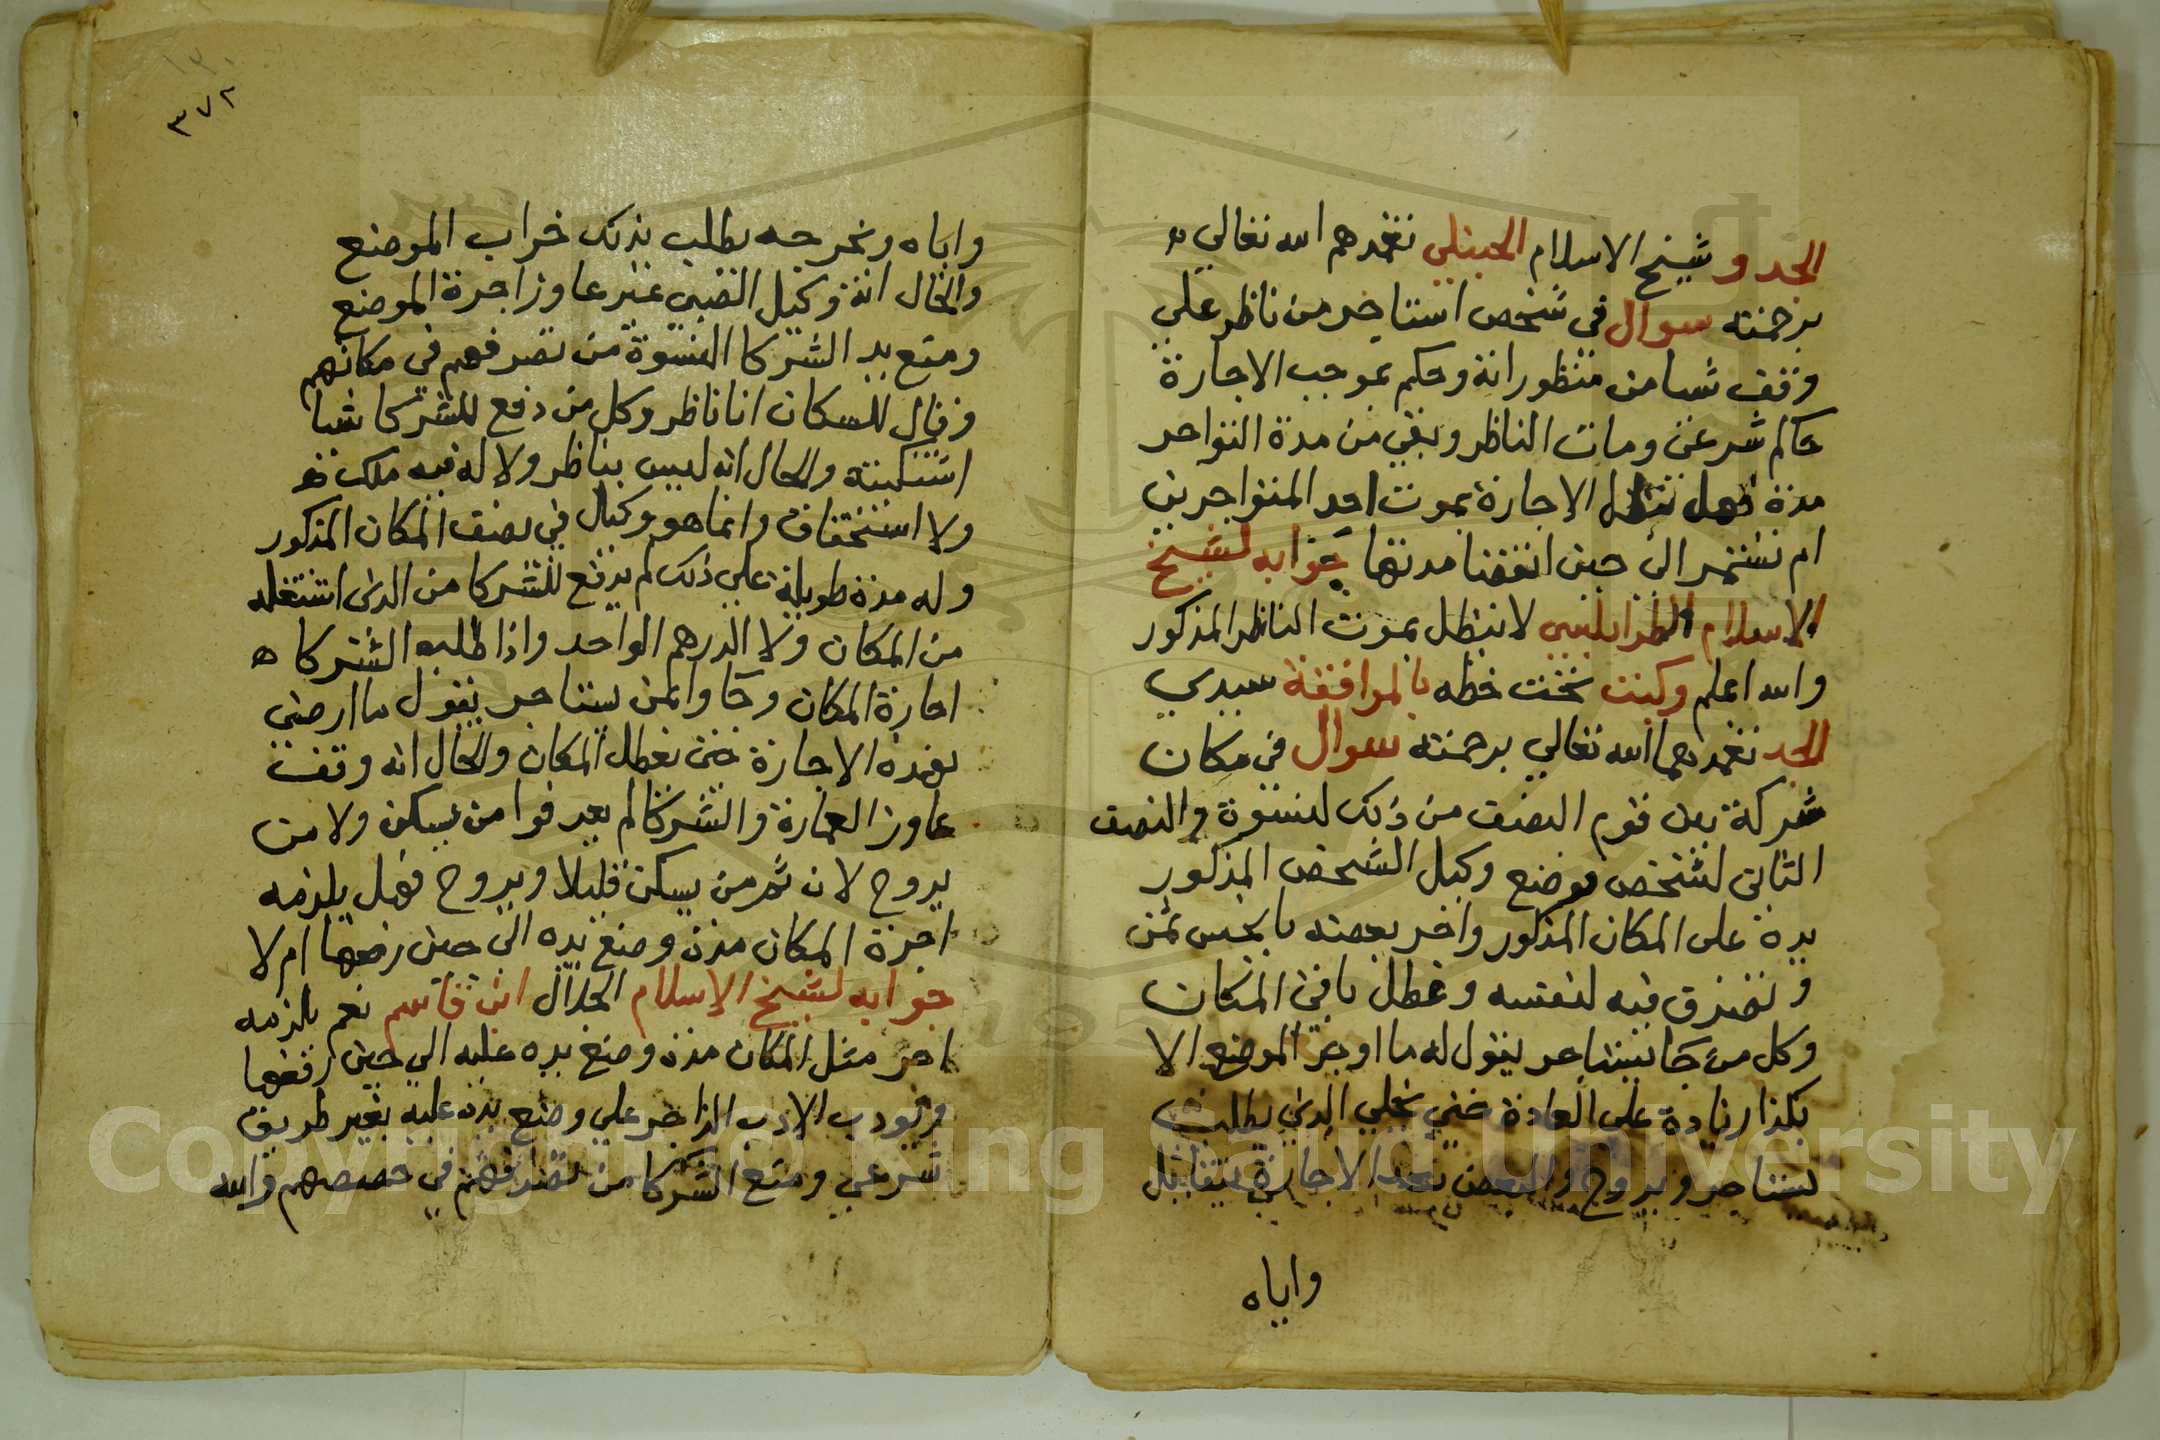 الجد وشيخ الاسلام الحنبلي تغمدهم الله تعالي
برحمته سوال في شخص استاجر من ناظر علي
وقف شيا من منظوراته وحكم بموجب الاجارة
حاكم شرعي ومات الناظر وبقي من مدة التواجر
مدة فهل تبطل الاجارة بموت احد المتواجرين
ام تستمر الى حين انقضا مدتها جوابه لشيخ
الاسلام الطرابلسي لا تبطل بموت الناظر المذكور
والله اعلم وكتب تحت خطه بالموافقة سيدي
الجد تغمدهما الله تعالي برحمته سوال في مكان
شركة بين قوم النصف من ذلك لنسوة والنصف
الثاني لشخص فوضع وكيل الشخص المذكور
يده على المكان المذكور واخر بعضه بابخس ثمن
وتصرف فيه لنفسه وعطل باقي المكان
وكل من جا يستاجر يقول له ما اوجر الموضع الا
بكذا زيادة على العادة حتي يخلي الذي يطلب
يستاجر ويروح والبعض بعد الاجارة يتقايل
واياه
٣٧٢
واياه ويخرجه يطلب بذلك خراب الموضع
والحال انه وكيل الصبي غير عاوز اجرة الموضع
ومنع يد الشركا النسوة من تصرفهم في مكانهم
وقال للسكان انا ناظر وكل من دفع للشركا شيا
اشتكيته والحال انه ليس بناظر ولا له فيه ملك
ولا استحقاق وانما هو وكيل في نصف المكان المذكور
وله مدة طويلة علي ذلك لم يدفع للشركا من الذي استغله
من المكان ولا الدرهم الواحد واذا طلبه الشركا
اجارة المكان وجاوا بمن يستاجر يقول ما ارضي
بهذه الاجارة حتى يعطل المكان والحال انه وقف
عاوز العمارة والشركا لم يعرفوا من يسكن ولا من
يروح لان ثم من يسكن قليلا ويروح فهل يلزمه
اجرة المكان مدة وضع يده الى حين رفعها ام لا
جوابه لشيخ الاسلام الجلال ابن قاسم نعم يلزمه
اجر مثل المكان مدة وضع يده عليه الي حين رفعها
ويودب الادب الزاجر علي وضع يده عليه بغير طريق
شرعي ومنع الشركا من تصرفهم في حصصهم والله
Copyright © King Saud University